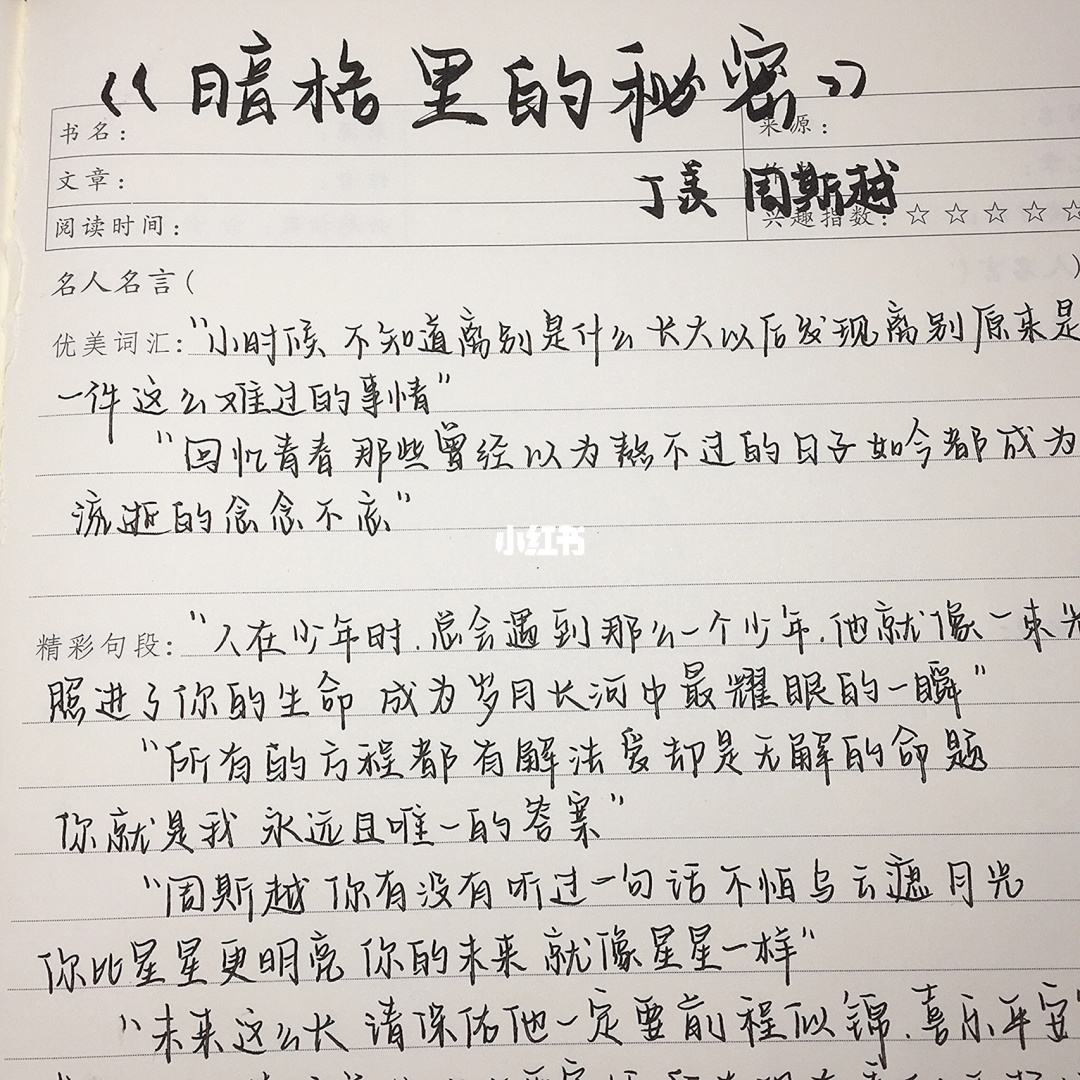 《暗格里的秘密》
书名：
来源：
文章：
丁羡 周斯越
阅读时间：
兴趣指数：☆☆☆☆☆
名人名言（ ）
优美词汇："小时候 不知道离别是什么 长大以后发现离别原来是
一件这么难过的事情"
"回忆青春 那些曾经以为熬不过的日子如今都成为
流逝的念念不忘"
小红书
精彩句段："人在少年时，总会遇到那么一个少年，他就像一束光
照进了你的生命 成为岁月长河中最耀眼的一瞬"
"所有的方程都有解法 爱却是无解的命题
你就是我 永远且唯一的答案"
"周斯越 你有没有听过一句话 不怕乌云遮月光
你比星星更明亮 你的未来 就像星星一样"
"未来这么长 请保佑他一定要前程似锦，喜乐平安"